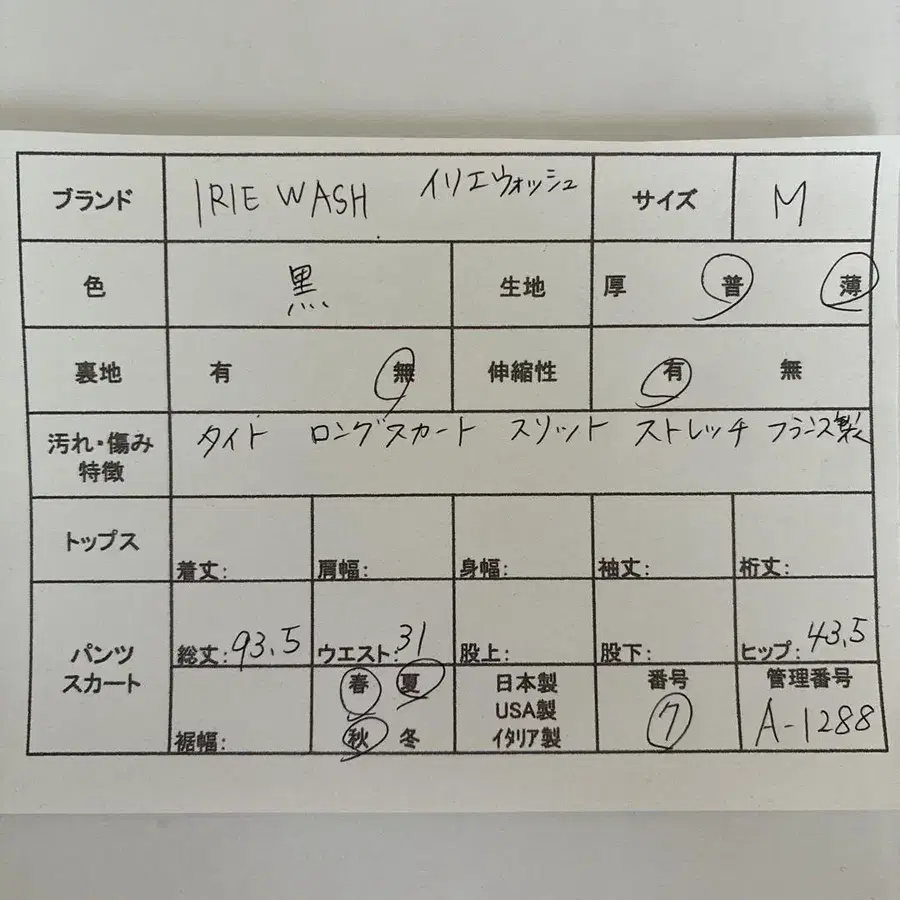 ブランド IRIE WASH イリエウォッシュ サイズ M
色 黒 生地 厚 普 薄
裏地 有 無 伸縮性 有 無
汚れ・傷み タイト ロングスカート スソット ストレッチ フランス製
特徴
トップス 着丈: 肩幅: 身幅: 袖丈: 桁丈:
パンツ 総丈:93.5 ウエスト:31 股上: 股下: ヒップ:43.5
スカート 裾幅: 春 夏 日本製 番号 管理番号
USA製 7 A-1288
秋 冬 イタリア製